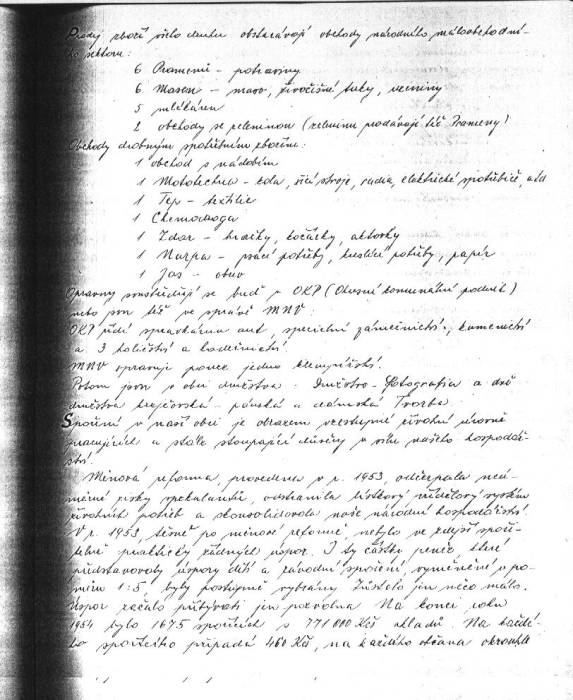 Prodej zboží všeho druhu obstarávají obchody národního, maloobchodní-
ho sektoru:
6 Pramenů - potraviny
6 Masen - maso, živočišné tuky, uzeniny
5 mlékáren
2 obchody se zeleninou (zeleninu prodávají též Prameny)
Obchody drobným spotřebním zbožím:
1 obchod s nádobím
1 Mototechna - kola, šicí stroje, radia, elektrické spotřebiče, atd
1 Tep - textilie
1 Chemodroga
1 Zdar - hračky, kočárky, aktovky
1 Narpa - psací potřeby, kreslící potřeby, papír
1 Jas - obuv
Opravny soustřeďují se buď v OKP (Okresní komunální podnik)
nebo jsou též ve správě MNV:
OKP řídí správkárnu aut, specielní zámečnictví, kamenictví
a 3 holičství a kadeřnictví.
MNV spravuje pouze jedno klempířství.
Potom jsou v obci družstva: Družstvo - Fotografia a dvě
družstva krejčovská - pánská a dámská Tvorba.
Spoření v naší obci je obrazem vzestupné životní úrovně
pracujících a stále stoupající důvěry v sílu našeho hospodář-
ství.
Měnová reforma, provedena v r. 1953, odčerpala neú-
měrné zisky spekulantů, odstranila lístkový přídělový systém
životních potřeb a skonsolidovala naše národní hospodářství.
V r. 1953, těsně po měnové reformě, nebylo ve zdejší spoři-
telně prakticky žádných úspor. I ty částky peněz, které
představovaly úspory dětí a závodní spoření, vyměněné v po-
měru 1:5 byly postupně vybrány. Zůstalo jen něco málo.
Úspor začalo přibývati jen pozvolna. Na konci roku
1954 bylo 1675 spořících s 771 000 Kčs vkladů. Na každé-
ho spořícího připadá 460 Kčs, na každého občana okrouhle